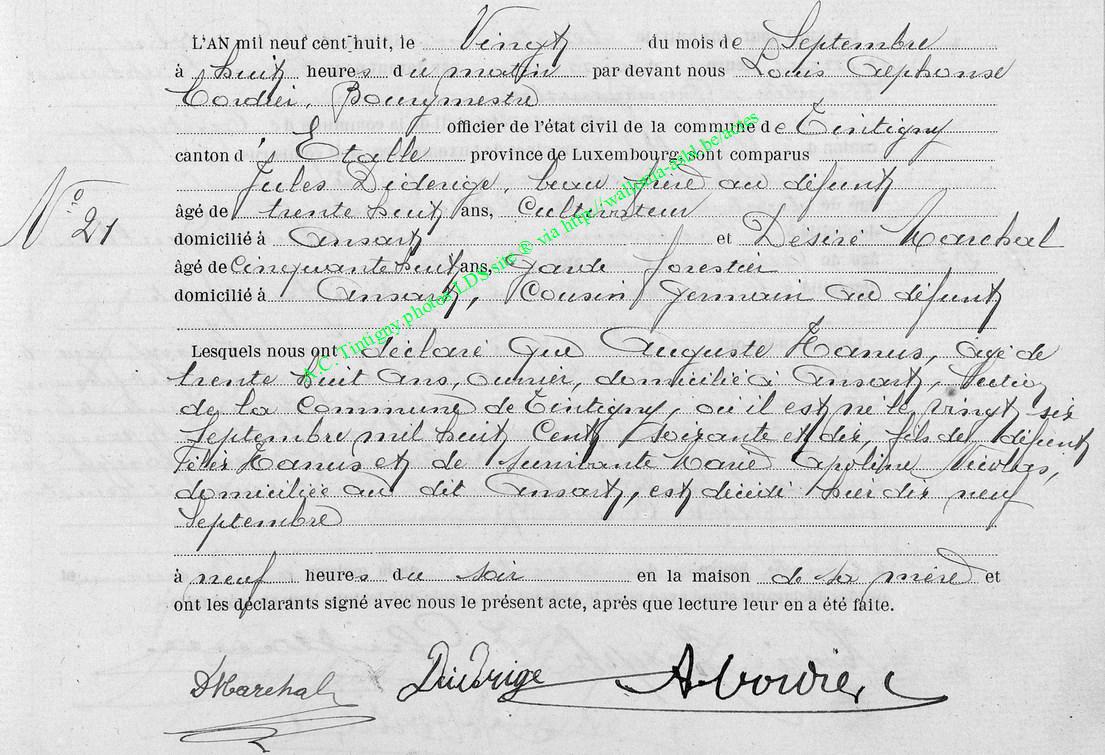 L'AN mil neuf cent huit, le Vingt du mois de Septembre
à huit heures du matin par devant nous Louis Alphonse
Cordier, Bourgmestre
officier de l'état civil de la commune de Tintigny
canton d'Etalle province de Luxembourg, sont comparus
Jules Diderige, beau frère au défunt
N° 21
âgé de trente huit ans, Cultivateur
domicilié à Ansart et Désiré Marchal
âgé de Cinquante huit ans, garde forestier
domicilié à Ansart, Cousin germain au défunt
Lesquels nous ont déclaré que Auguste Hanus, âgé de
trente huit ans, ouvrier, domicilié à Ansart, Section
de la Commune de Tintigny, où il est né le vingt six
Septembre mil huit Cent soixante et dix, fils de défunt
Félix Hanus et de survivante Marie Apoline Nicolas,
domiciliée au dit Ansart, est décédé hier dix neuf
Septembre
à neuf heures du soir en la maison de sa mère et
ont les déclarants signé avec nous le présent acte, après que lecture leur en a été faite.
DMarchal Diderige A Cordier
A.C. Tintigny photos LDS site ® via http://wallonia-asbl.be/actes